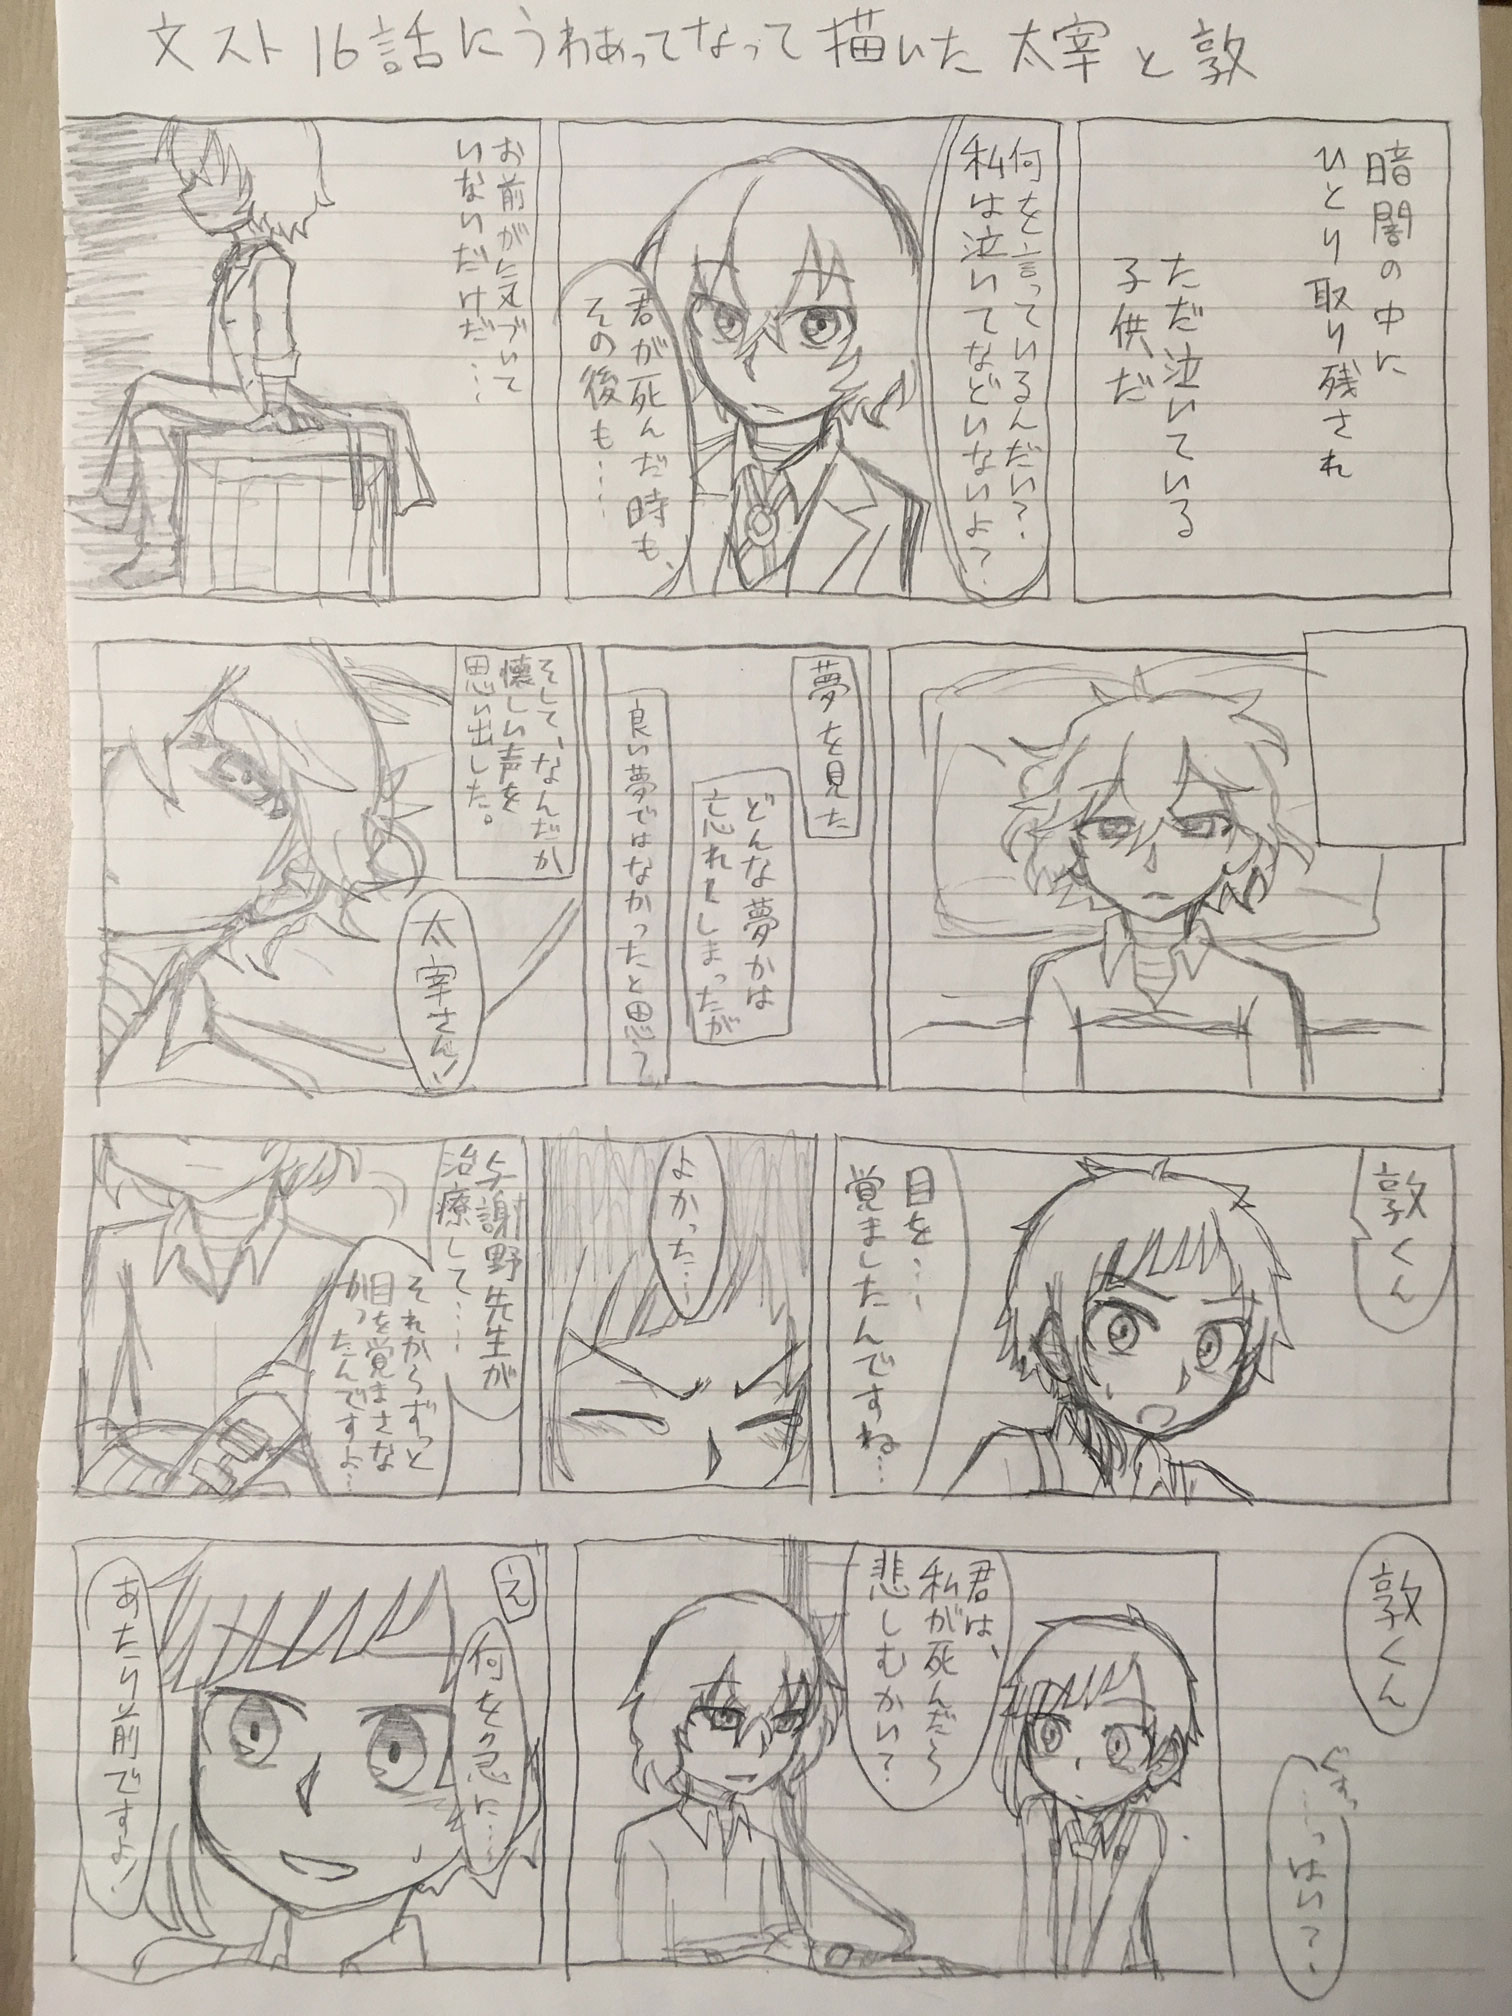 文スト16話にうわあってなって描いた太宰と敦
暗闇の中に
ひとり取り残され
ただ泣いている
子供だ
何を言っているんだい？
私は泣いてなどいないよ？
君が死んだ時も、
その後も……
お前が気づいて
いないだけだ…
夢を見た
どんな夢かは
忘れてしまったが
良い夢ではなかったと思う
そして、なんだか
懐しい声を
思い出した。
太宰さん!
敦くん
目を…
覚ましたんですね…
よかった…
与謝野先生が
治療して…
それからずっと
目を覚まさな
かったんですよ…
敦くん
ぐすっ
…っはい？
君は、
私が死んだら
悲しむかい？
え
何を急に…
あたり前ですよ!